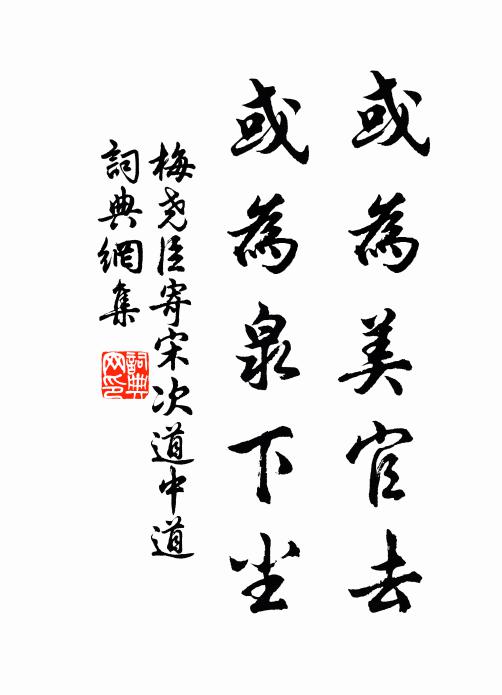 或為美官去
或為泉下尘
梅尧臣寄宋次道中道
詞典網集
詞典网印